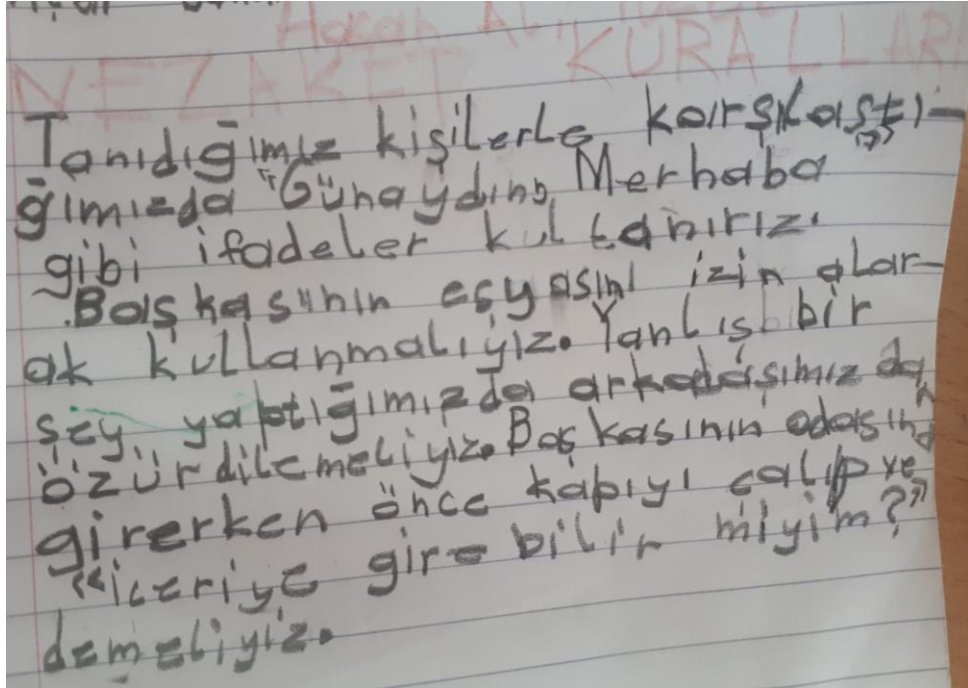 NEZAKET KURALLARI
Tanıdığımız kişilerle karşılaştı-
ğımızda "Günaydın, Merhaba"
gibi ifadeler kullanırız.
Başkasının eşyasını izin alar-
ak kullanmalıyız. Yanlış bir
şey yaptığımızda arkadaşımızdan
özür dilemeliyiz. Başkasının odasına
girerken önce kapıyı çalıp ve
"içeriye gire bilir miyim?"
demeliyiz.